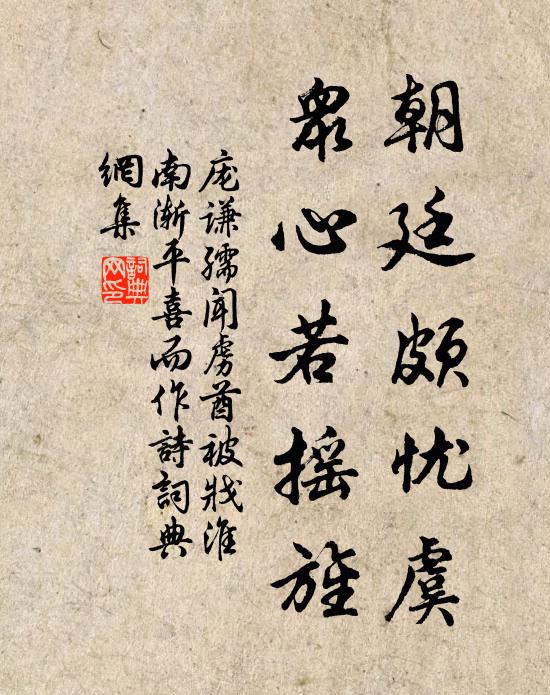 朝廷頗忧虞
眾心若摇旌
庞谦孺闻虏酋被戕淮
南渐平喜而作詩詞典
網集
詞典網印